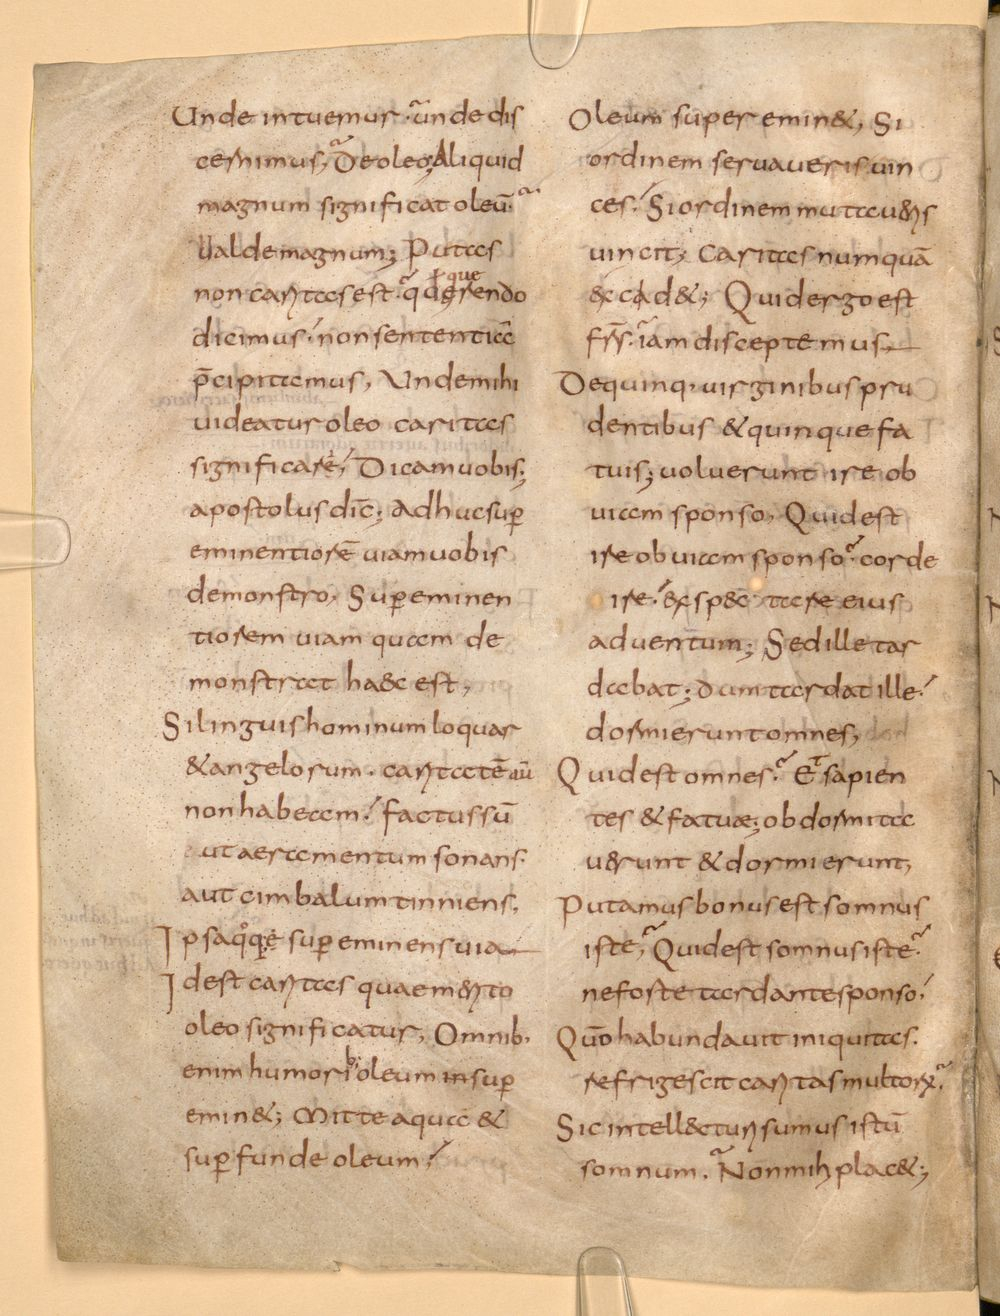 Unde intuemur · unde dis
cernimus; De oleo; Aliquid
magnum significat oleū ·
Ualde magnum; Putas
non caritas est · q̄ que q̄rendo
dicimus · non sententiā
p̄cipitamus, Unde mihi
uideatur oleo caritas
significare; Dicam uobis;
apostolus dic̄; Adhuc sup̄
eminentiorē uiam uobis
demonstro, Sup̄eminen
tiorem uiam quam de
monstrat haec est,
Si linguis hominum loquar
& angelorum · caritatē aū
non habeam · factus sū
ut aeramentum sonans ·
aut cimbalum tinniens,
Ipsa sup̄eminens uia
Id est caritas quae merito
oleo significatur, Omnib ·
enim humorib; oleum insup̄
emin&; Mitte aquā &
sup̄funde oleum
Oleum superemin&, Si
ordinem seruaueris uin
ces · Si ordinem mutaueris
uincit; Caritas numquā
& cad&; Quid ergo est
fr̄s · iam disceptemus,
De quinq · uirginibus pru
dentibus & quinque fa
tuis; uoluerunt ire ob
uiam sponso, Quid est
ire obuiam sponso corde
ire · exspectare eius
aduentum; Sed ille tar
dabat; dum tardat ille ·
dormierunt omnes,
Quid est omnes · Et sapien
tes & fatuæ; obdormita
uerunt & dormierunt,
Putamus bonus est somnus
iste, Quid est somnus iste ·
ne forte tardante sponso ·
Quō habundauit iniquitas ·
refrigescit caritas multorꝝ ·
Sic intellecturi sumus istū
somnum · Non mihi plac&;